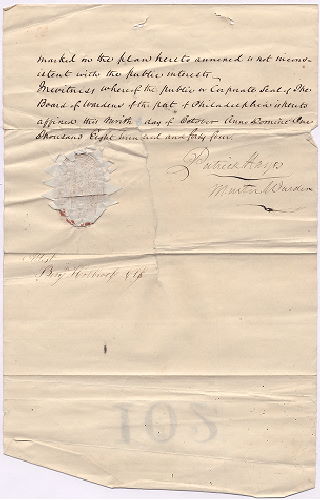 marked on the plan hereto annexed is not incons-
istent with the public interests
In witness whereof the public or Corporate Seal of the
Board of Wardens of the port of Philadelphia is hereto
affixed this ninth day of October Anno Domini One
thousand Eight hundred and forty four.
Patrick Hayes
Master Warden
Attest
Benj Clk
102